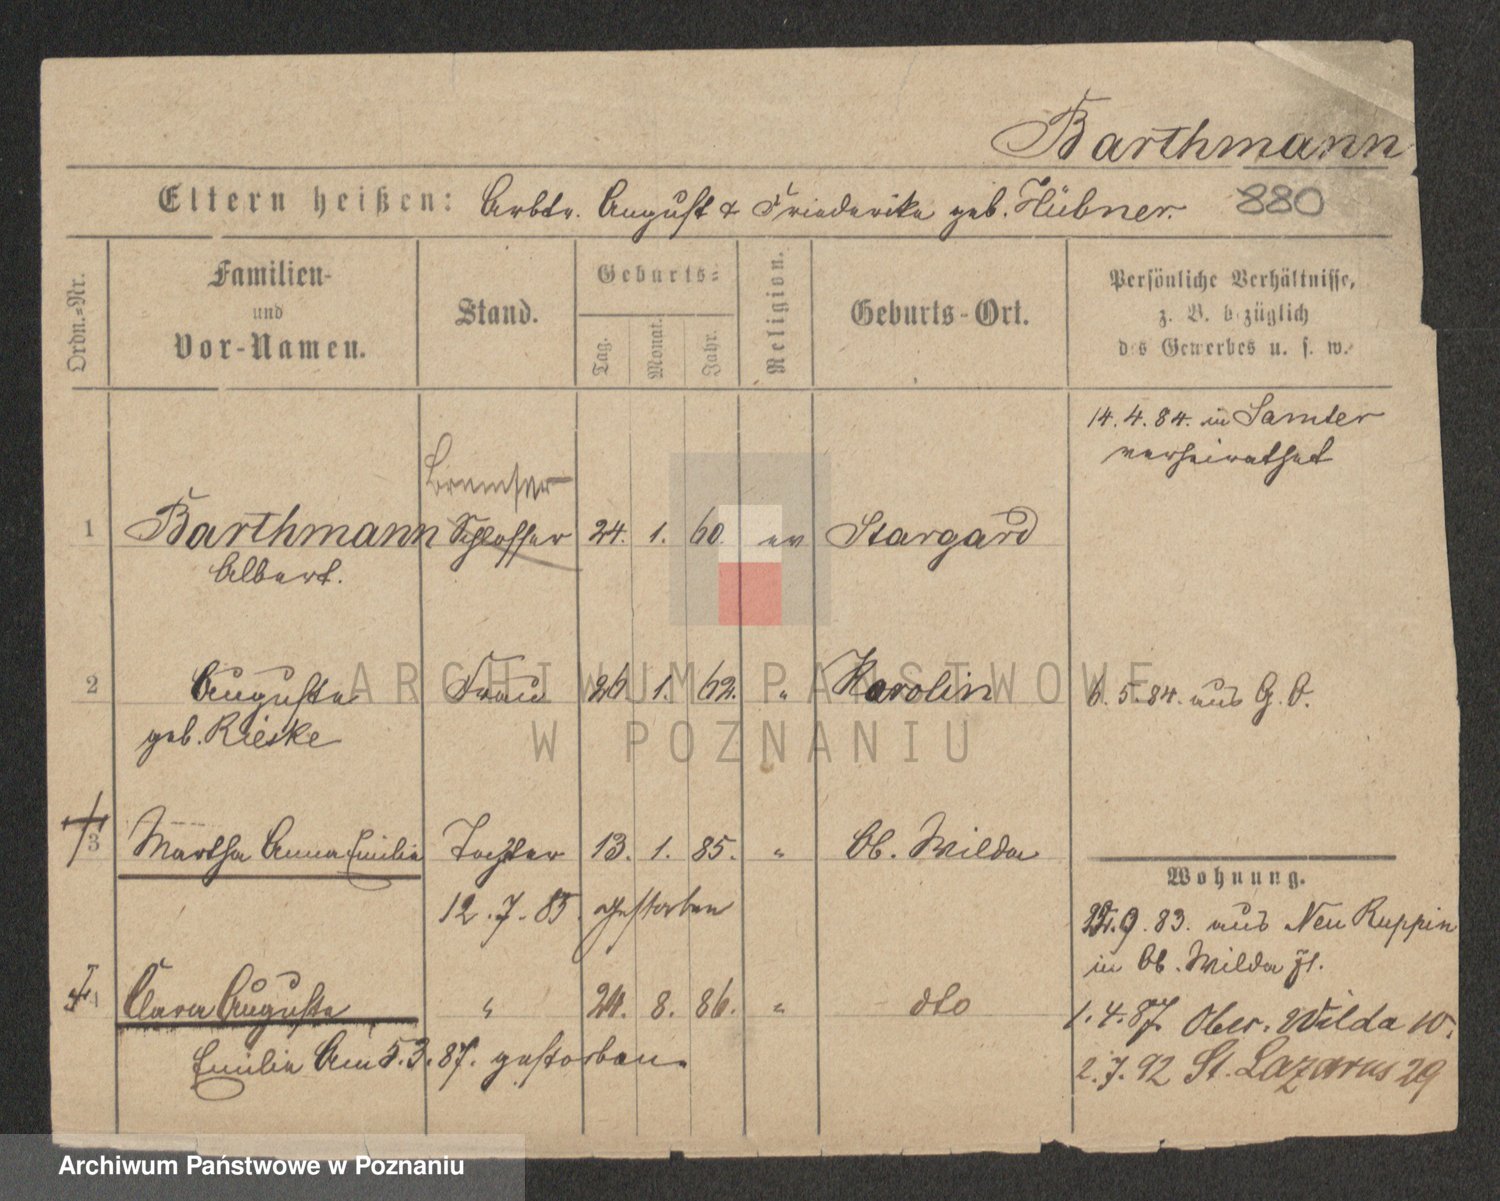 Barthmann
Eltern heißen: Arbtr. August & Friederike geb. Hübner.
880
Ordn.=Nr.
Familien-
und
Vor-Namen.
Stand.
Geburts=
Tag.
Monat.
Jahr.
Religion.
Geburts-Ort.
Persönliche Verhältnisse,
z. B. bezüglich
des Gewerbes u. s. w.
14.4.84. in Samter
verheirathet
Bremser
1 Barthmann Schlosser 24. 1. 60 ev Stargard
Albert.
2 Auguste Frau 26 1. 62. " Karolin 6. 5. 84. aus G. O.
geb. Rieske
3 Martha Anna Emilie Tochter 13. 1. 85. " Ob. Wilda
12. 7. 85. gestorben
Wohnung.
9. 83. aus Neu Ruppin
in Ob. Wilda
4 Clara Auguste " 24. 8. 86. " dto
1. 4. 87. Ober. Wilda 10.
Emilie Am 5. 3. 87. gestorben.
2. 7. 92 St. Lazarus 29
ARCHIWUM PAŃSTWOWE
W POZNANIU
Archiwum Państwowe w Poznaniu